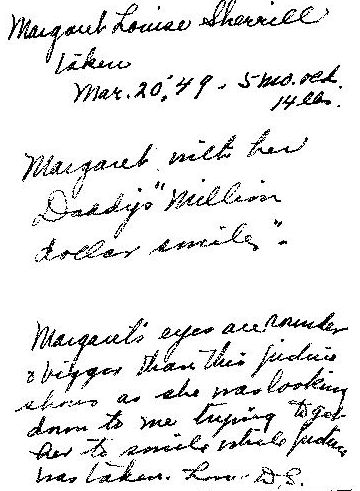 Margaret Louise Sherrill
taken
Mar. 20, '49 - 5 mo. old.
14 lbs.
Margaret with her
Daddy's "Million
dollar smile".
Margaret's eyes are rounder
& bigger than this picture
shows as she was looking
down to me trying to get
her to smile while picture
was taken. Love - D.S.